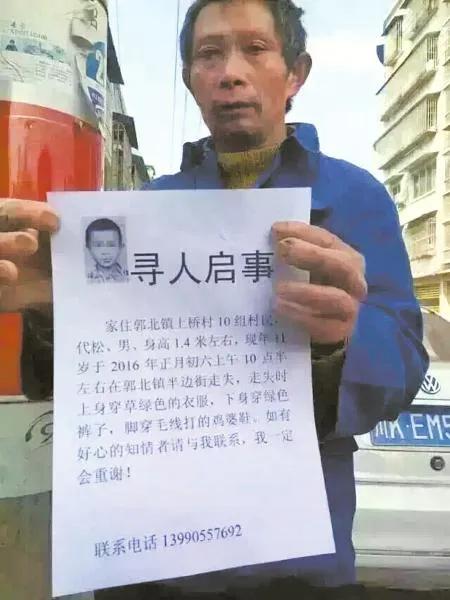 寻人启事
家住郭北镇上桥村10组村民，
代松、男、身高1.4米左右，现年11
岁于2016年正月初六上午10点半
左右在郭北镇半边街走失，走头时
上身穿草绿色的衣服，下身穿绿色
裤子，脚穿毛线打的鸡婆鞋。如有
好心的知情者请与我联系，我一定
会重谢！
联系电话 13990557692
川K·EM5